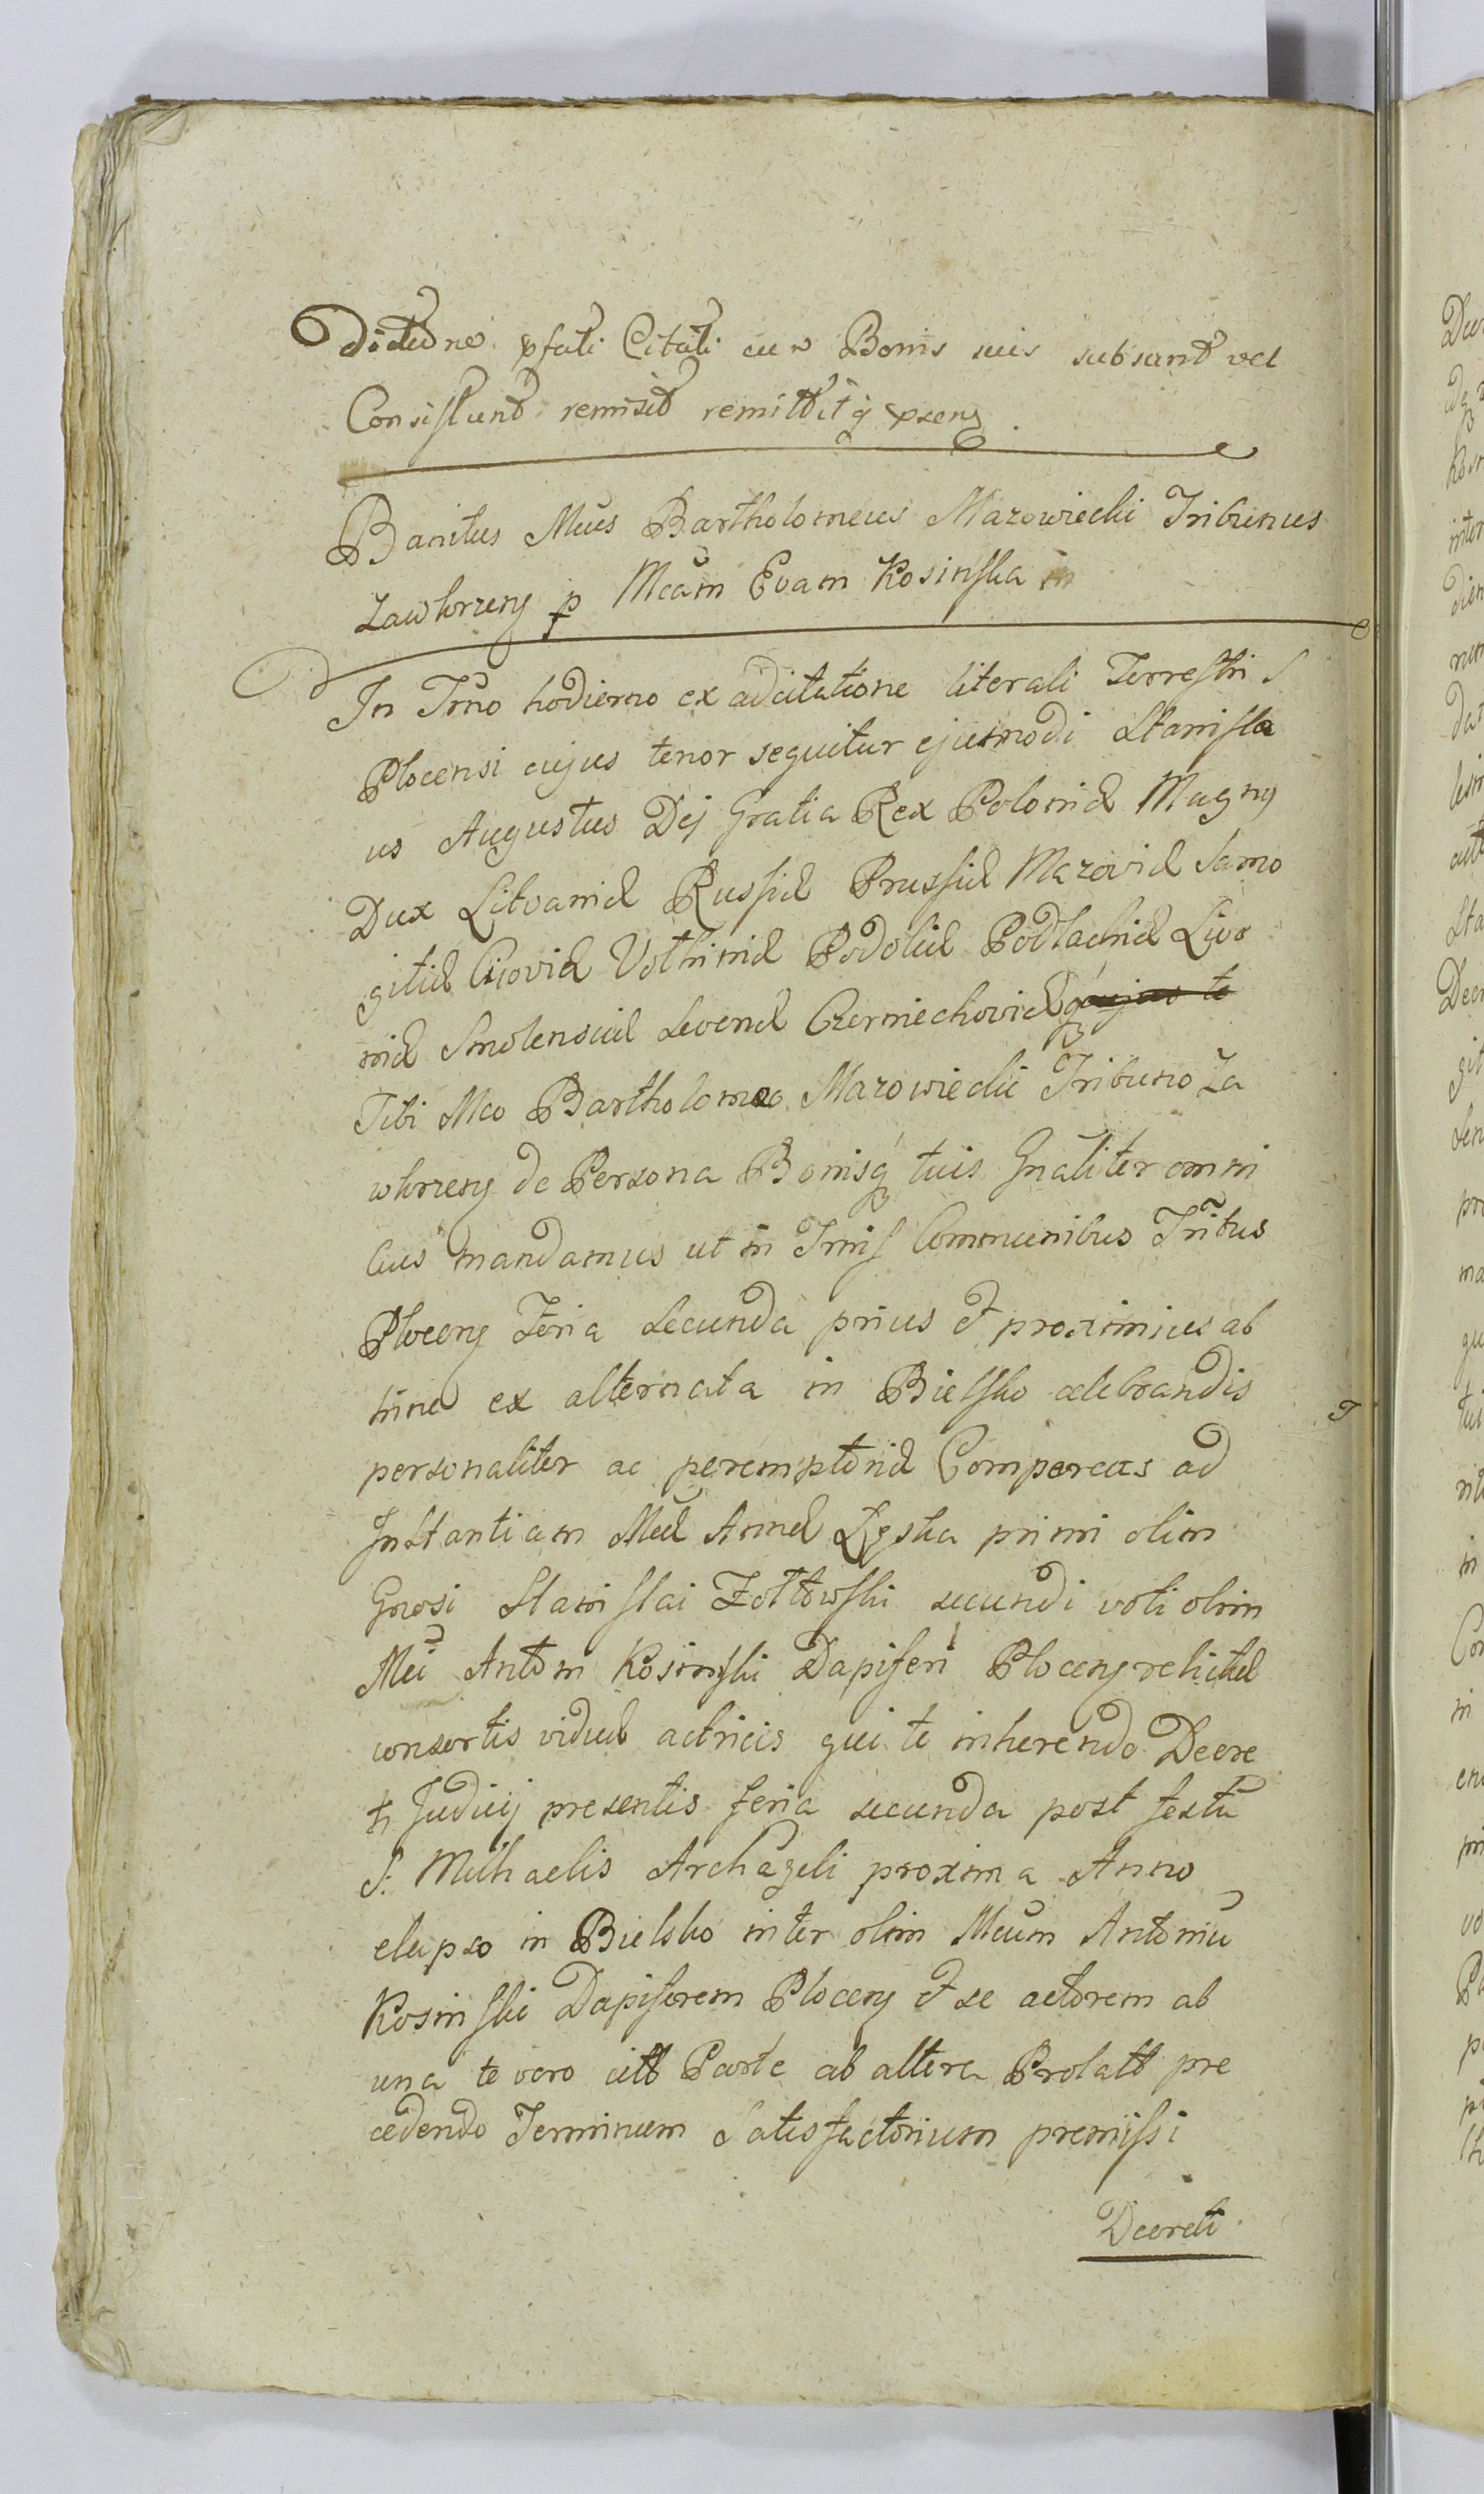 Dictione pfati Citati cum Bonis suis subsunt vel
Consistunt remisit remittitq̃ prens.
Banitus Mcus Bartholomeus Mazowiecki Tribunus
Zawkrzeng p Mcam Evam Kosinska in
In Trno hodierno ex adcitatione literali Terrestri
Plocensi cujus tenor sequitur ejusmodi Stanisla
us Augustus Dej Gratia Rex Polonie Magng
Dux Litvanie Russie Prussie Mazovie Samo
gitie Kijovie Volhinie Podolie Podlachie Livo
nie Smolenscie Severie Czerniechovieq̃ cujus te
Tibi Mco Bartholomeo Mazowiecki Tribuno Za
wkrzeng de Persona Bonisq̃ tuis Gnaliter omni
bus mandamus ut in Trnis Communibus Trribus
Ploceng Feria secunda prius et proximius ab
hinc ex alternata in Bielsko celebrandis
personaliter ac peremptorie Compareas ad
Instantiam Mce Anne Lgska primi olim
Gnosi Stanislai Zołtowski secundi voti olim
Mci Antoni Kosinski Dapiferi Ploceng relicte
consortis vidue actricis qui te inherendo Decre
ti Judicij presentis feria secunda post festũ
S. Michaelis Archãgeli proxima Anno
elapso in Bielsko inter olim Mcum Antoniũ
Kosinski Dapiferem Ploceng et se actorem ab
una te vero citt Parte ab altera Prolatt pre
cedendo Terminum Satisfactorium premissi
Decreti